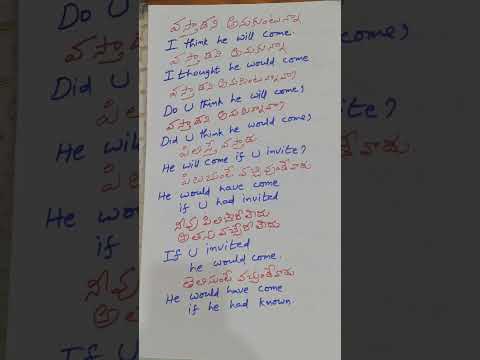 వస్తాడని అనుకుంటున్నా
I think he will come.
వస్తాడని అనుకున్నా
I thought he would come
వస్తాడని అనుకుంటున్నావా?
Do U think he will come?
వస్తాడని అనుకున్నావా?
Did U think he would come?
పిలిస్తే వస్తాడు
He will come if U invite?
పిలిచుంటే వచ్చివుండేవాడు
He would have come
if U had invited
నీవు పిలిచేవాడు
అతను వచ్చేవాడు
If U invited
he would come.
తెలిసుంటే వచ్చుండేవాడు
He would have come
if he had known.